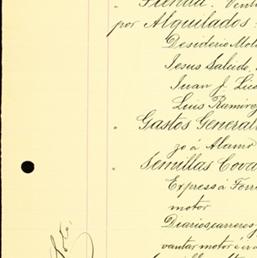 " Tienda. Vent
por Alquilados.
Desiderio Mol
Jesus Salido.
Juan J. Luc
Luis Ramirez
" Gastos General
go á Alamo
" Semillas Cova
Express á Ferr
motor
Diarios, carreros,
vantar motor é